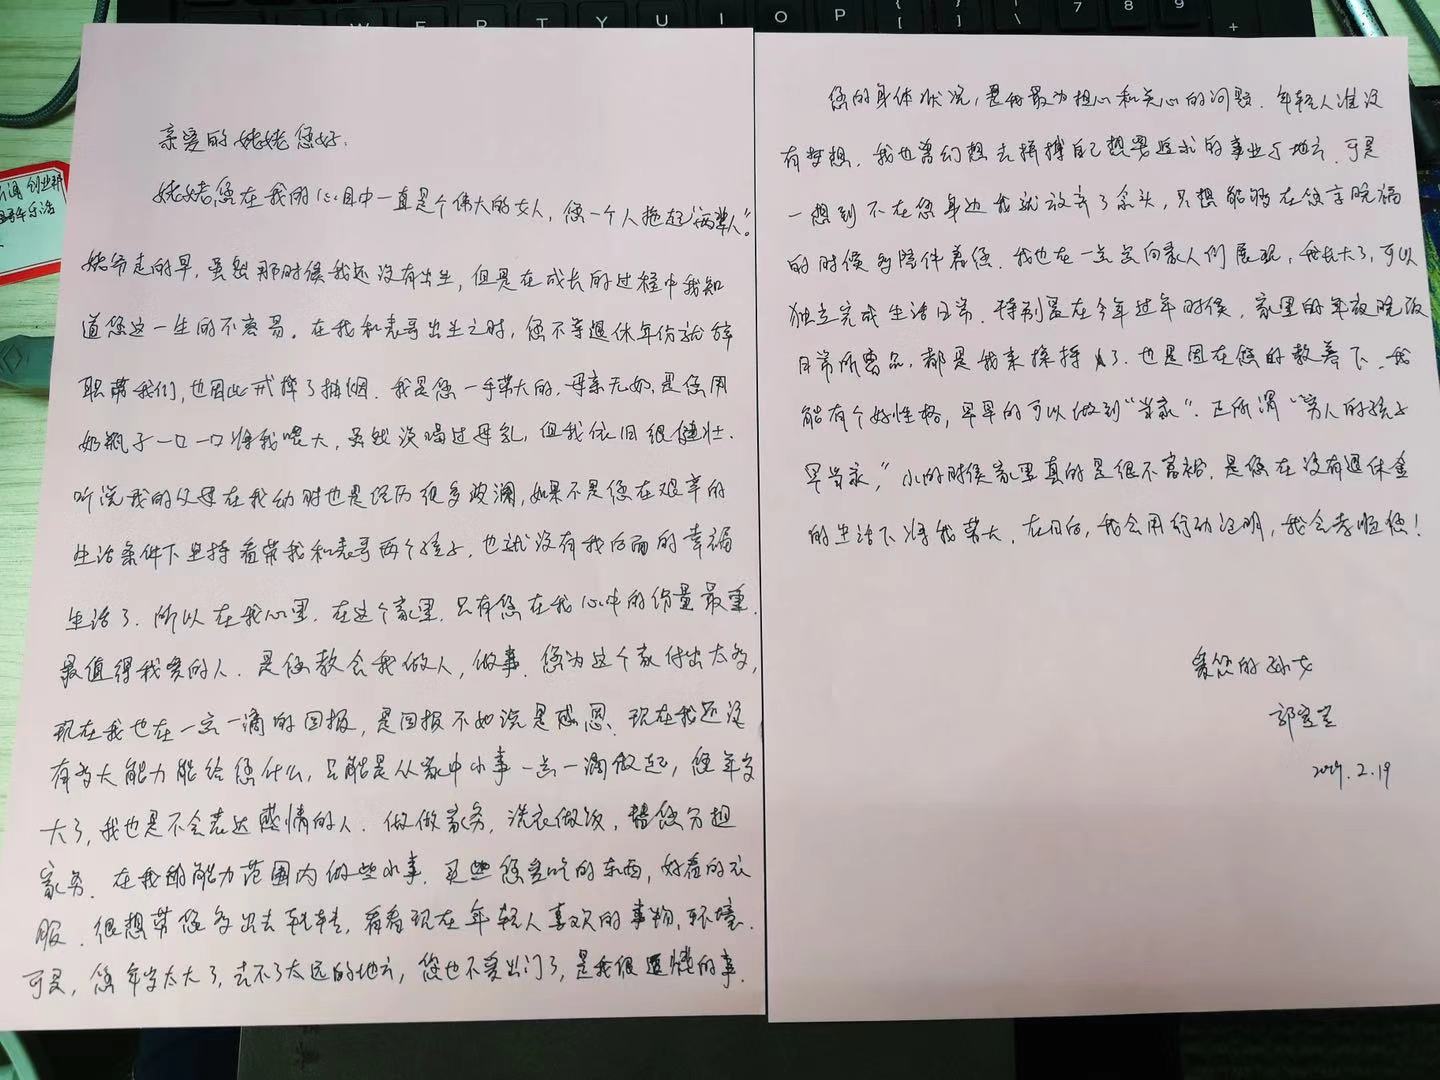 亲爱的姥姥您好.
姥姥,您在我的心目中一直是个伟大的女人,您一个人拖起"两辈人"。
姥爷走的早,虽然那时候我还没有出生,但是在成长的过程中我知
道您这一生的不容易。在我和表哥出生之时,您不等退休年份就辞
职带我们,也因此戒掉了抽烟.我是您一手带大的.母亲无奶,是您用
奶瓶子一口一口将我喂大,虽然没喝过母乳,但我依旧很健壮.
听说我的父母在我幼时也是经历很多波澜,如果不是您在艰辛的
生活条件下坚持着带我和表哥两个孩子,也就没有我后面的幸福
生活了.所以在我心里.在这个家里.只有您在我心中的份量最重.
最值得我爱的人.是您教会我做人,做事.您为这个家付出太多,
现在我也在一点一滴的回报,是回报不如说是感恩、现在我还没
有多大能力能给您什么,只能是从家中小事一点一滴做起,您年岁
大了,我也是不会表达感情的人.做做家务,洗衣做饭,替您分担
家务.在我的能力范围内做些小事.买些您爱吃的东西,好看的衣
服.很想带您多出去转转,看看现在年轻人喜欢的事物,环境.
可是,您年岁太大了,去不了太远的地方,您也不爱出门了,是我很遗憾的事.
您的身体状况,是我最为担心和关心的问题.年轻人谁没
有梦想.我也曾幻想去拼搏自己想要追求的事业与地方.可是
一想到不在您身边我就放弃了念头,只想能够在您享晚福
的时候多陪伴着您.我也在一点点向家人们展现,我长大了,可以
独立完成生活日常.特别是在今年过年时候,家里的年夜晚饭
日常所需品,都是我来操持了.也是因在您的教养下.我
能有个好性格,早早的可以做到"当家".正所谓"穷人的孩子
早当家",小的时侯家里真的是很不富裕.是您在没有退休金
的生活下将我带大.在日后,我会用行动证明,我会孝顺您!
爱您的孙女
郭
2.19